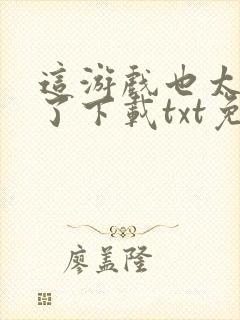 這游戲也太
了下載txt免
廖盖隆